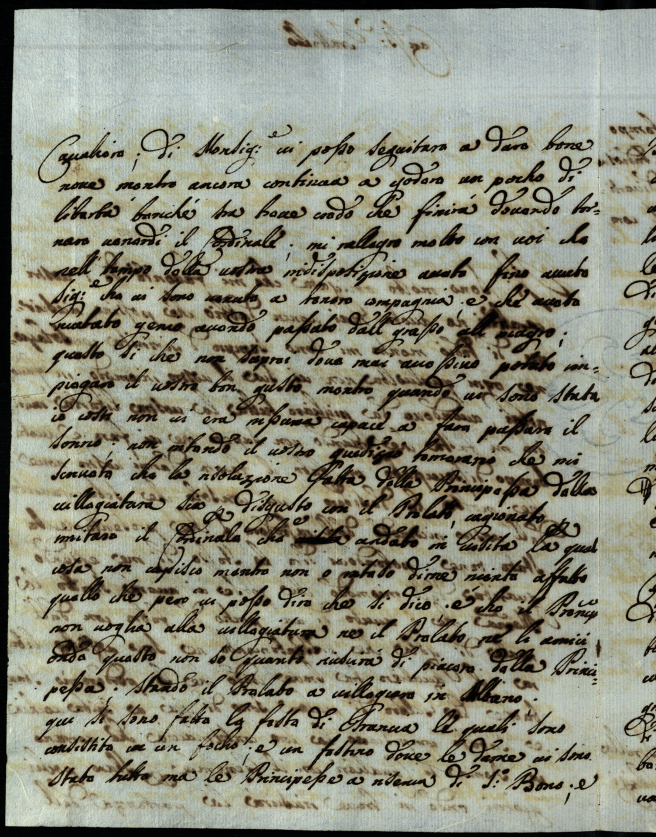 Cavaliero; di Monsig.e vi posso seguitare a dare bone
nove mentre ancora continua a godere un pocho di
libertà benché tra breve credo che finirà dovendo tor=
nare venerdì il Cardinale; mi rallegro molto con voi che
nell tempo della vostra indisposizione avete fino avuto
sig.e che vi sono venute a tenere compagnia, e che avete
mutato genio avendo passato dall grasso, all magro;
questo si che non saprei dove mai avessivo potuto im=
piegare il vostro bon gusto mentre quando vi sono stata
io costì non vi era nissuna capace a fare passare il
sonno: non intendo il vostro giudizio temerario che mi
scrivete che la risoluzione fatta dalla Principessa della
villeggitura sia disgusto con il Prelato, cagionato
il Cardinale che andato in visita la qual
cosa non capisco mentre non o potuto dirne niente affatto
quello che però vi posso dire che si dice è che il Princi
non voglia alla villegiatura ne il Prelato ne li amici
onde questo non so quanto riuscirà di piacere dalla Princi=
pessa. stando il Prelato a villegiare in Albano.
qui si sono fatta le festa di Francia le quali sono
consistite in un focho, e un festino dove le dame vi sono
state tutte ma le Principesse a riserva di S.a Bono, e